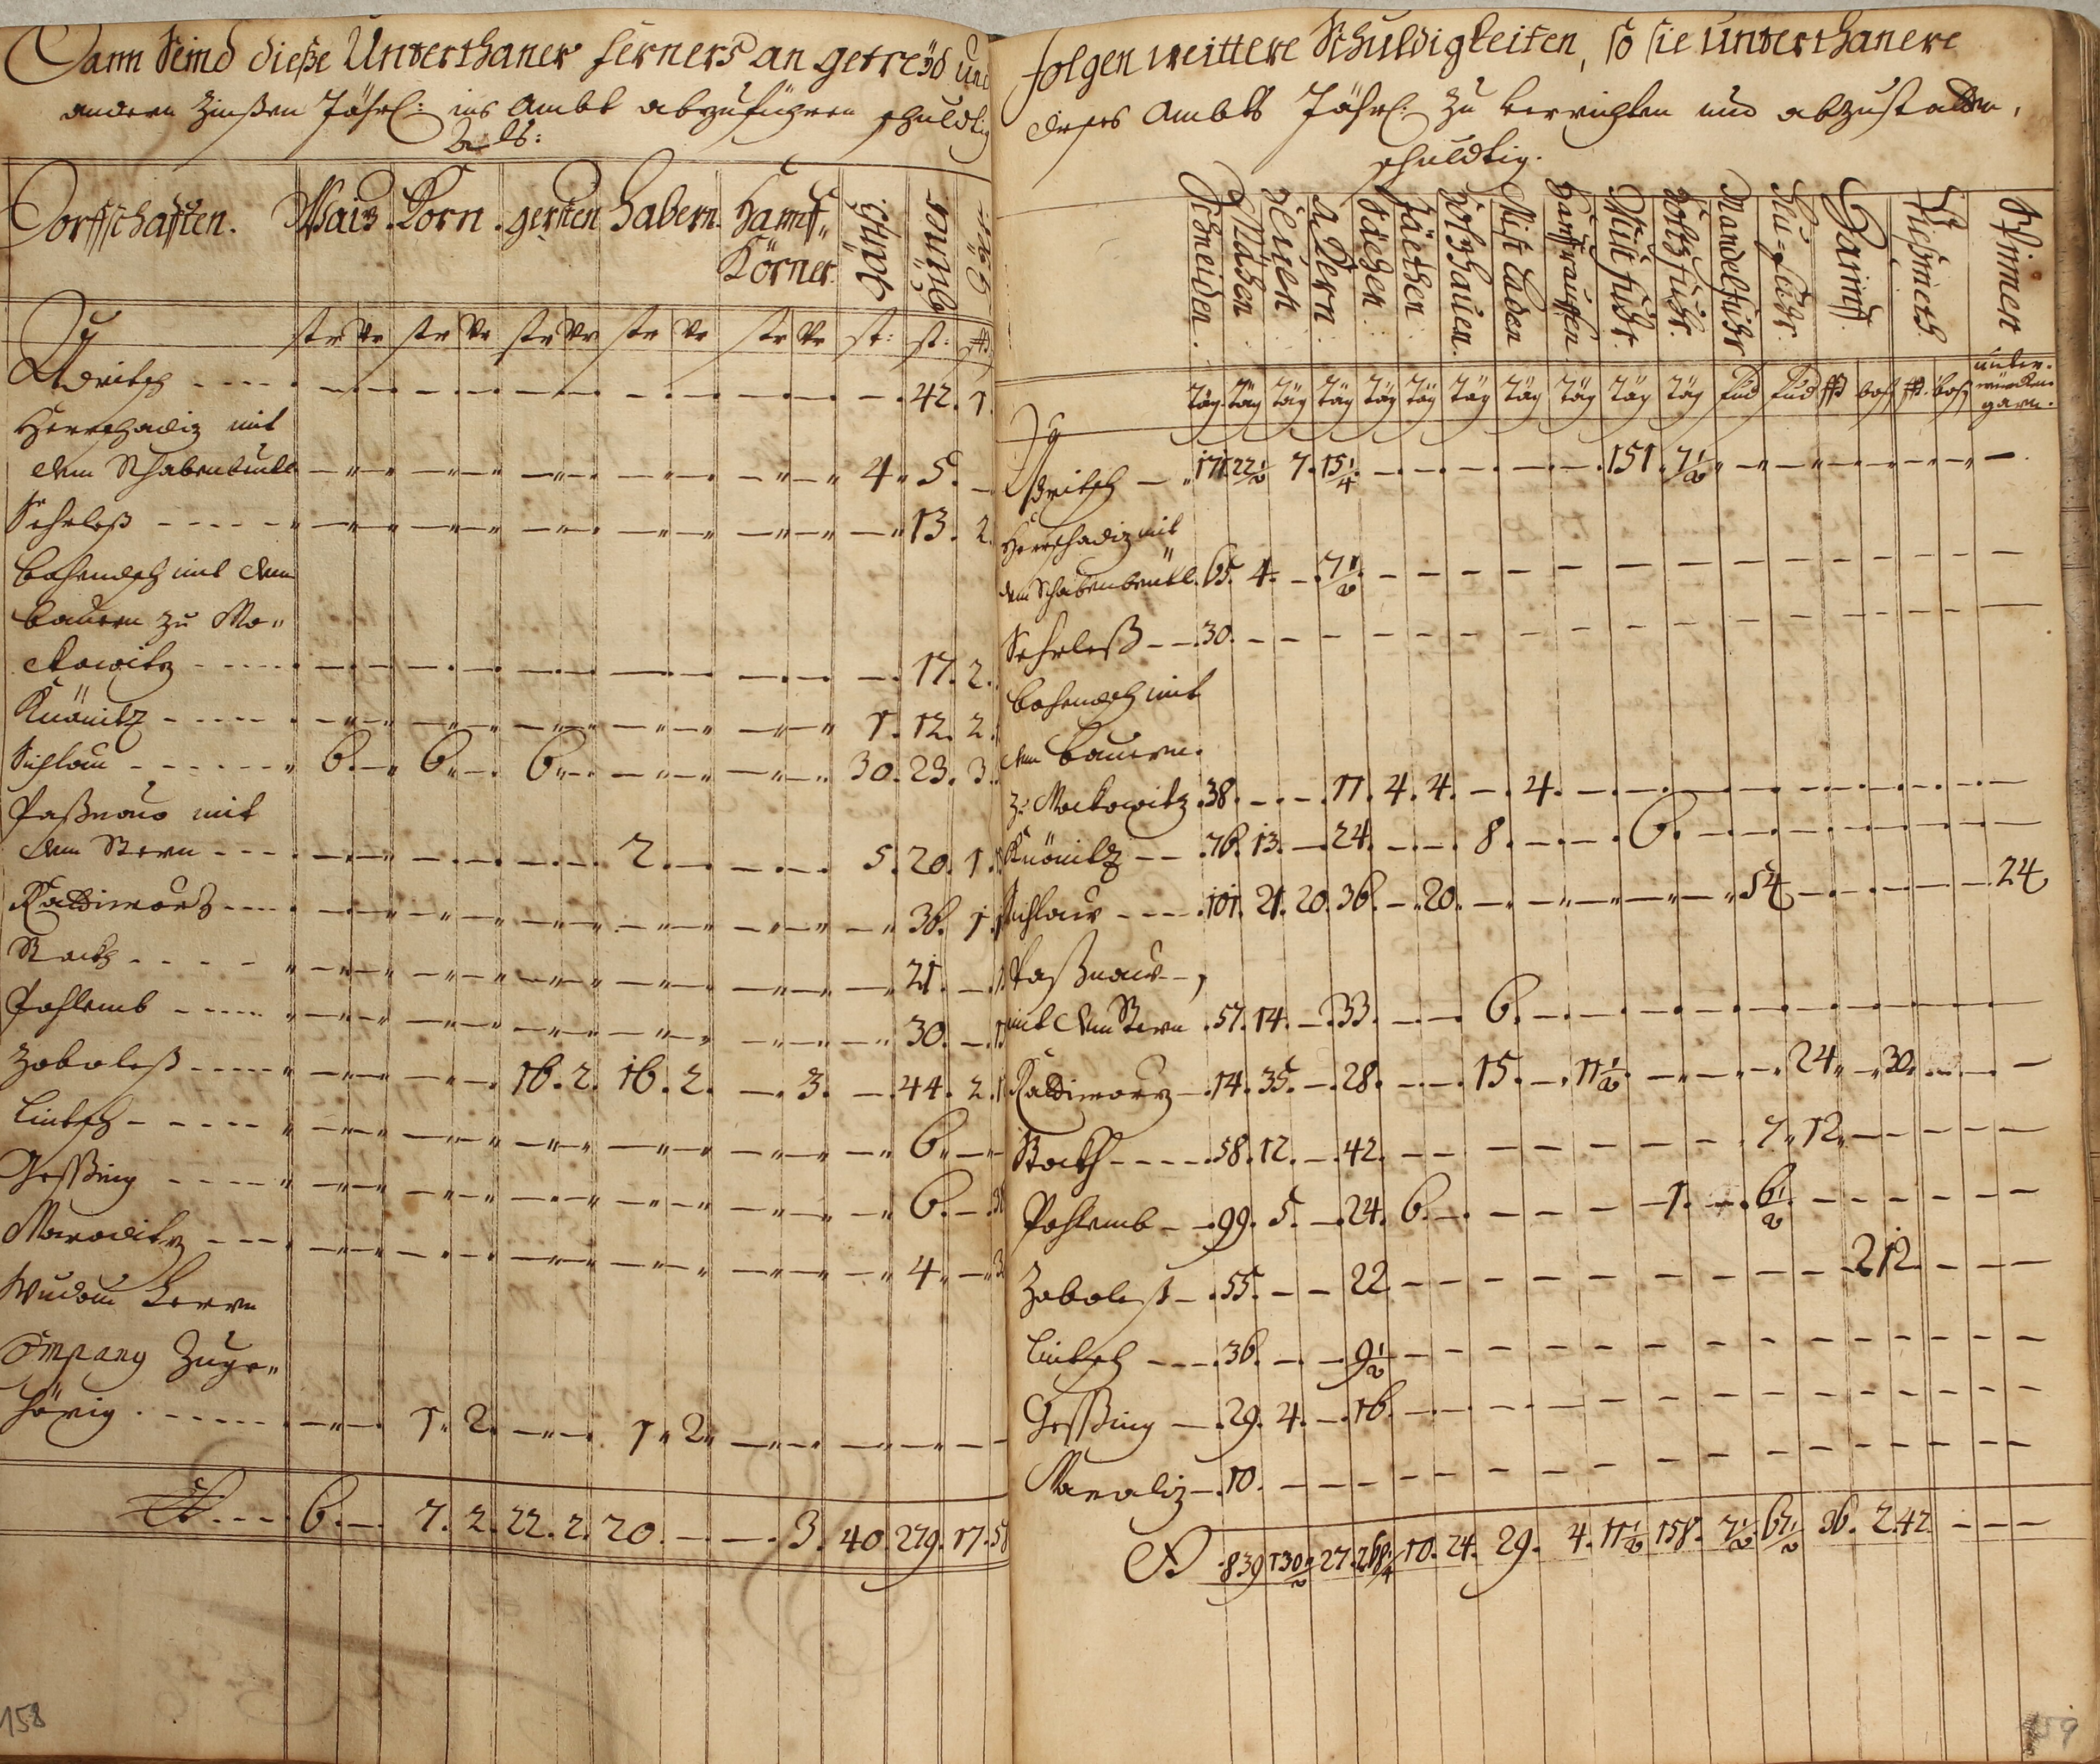 Dann Seind dieße Unterthaner ferners an getreÿd und
andern Zinßen Jährl: ins Ambt abzuführen schuldig
Alß:
Dorffschafften. Waiz. Korn. gersten Habern. Hanif„ Körner. Gänß. Hüner
str Vr str Vr str Vr str Vr str Vr st: st:
Udritsch - - - - 42. 1.
Herrschadiz mit
dem Schabenbeutl 4. 5. –
Sehrleß - - - - - 13. 2.
Boschendsch mit dem
bauern zu Mo„
ckowitz - - - - - 17. 2.
Knönitz - - - - - 1. 12. 2.
Sichlau - - - - - 6. – 6. – 6. – 30. 23. 3.
Paßnau mit
dem Stern - - - 2. – 5. 20. 1.
Radimorz - - - 36. 1.
Stöckh - - - - 21. –
Pohlemb - - - - 30. –
Zoboleß - - - - - 16. 2. 16. 2. – 3. – 44. 2.
Lintsch - - - - - 6. –
Gessßing - - - - 6. –
Maroditz - - - 4. –
Wudau Herrn
Company Zuge„
hörig - - - - - 1. 2. 1. 2.
6. – 7. 2. 22. 2. 20. – – 3. 40. 279. 17.
158
folgen weittere Schuldigkeiten, so sie unterthanere
dieses Ambts Jährl: zu verrichten und abzustatten,
schuldig.
Schneiden. Mähen Heüen ackern. Jäethen Holzhauen. Mist laden Hanfrauffen Mist fuhr. Holtzfuhr. Mandelfuhr Heu-fuhr. Spinnen
Täg Täg Täg Täg Täg Täg Täg Täg Täg Täg Täg Fud Fud
garn.
Udritsch – 171 22½ 7. 15¼ 151 7½
Herrschadiz mit
dem Schabenbeütl. 65. 4. – 7½
Sehrleß - - 30.
Boschendsch mit
dem bauern.
zu Mockowitz 38. – – 11. 4. 4. – 4.
Knönitz - - 76. 13. – 24. – – 8. – – 6.
Sichlau - - - 101. 21. 20. 36. – 20. 54 24
Paßnau -
mit dem Stern 57. 14. – 33. – – 6.
Radimorz – 14. 35. – 28. – – 15. – 11½ 24. – 30.
Stöckh - - - - 58. 12. – 42. 7. 12.
Pohlemb - - 99. 5. – 24. 6. 1. 6½
Zoboleß – 55. – – 22 212
Lintsch - - - 36. – – 9½
Gessßing – 29. 4. – 16.
Maroliz – 10.
839 130½ 27. 268¼ 10. 24. 29. 4. 11½ 158. 7½ 67½ 36. 242.
159